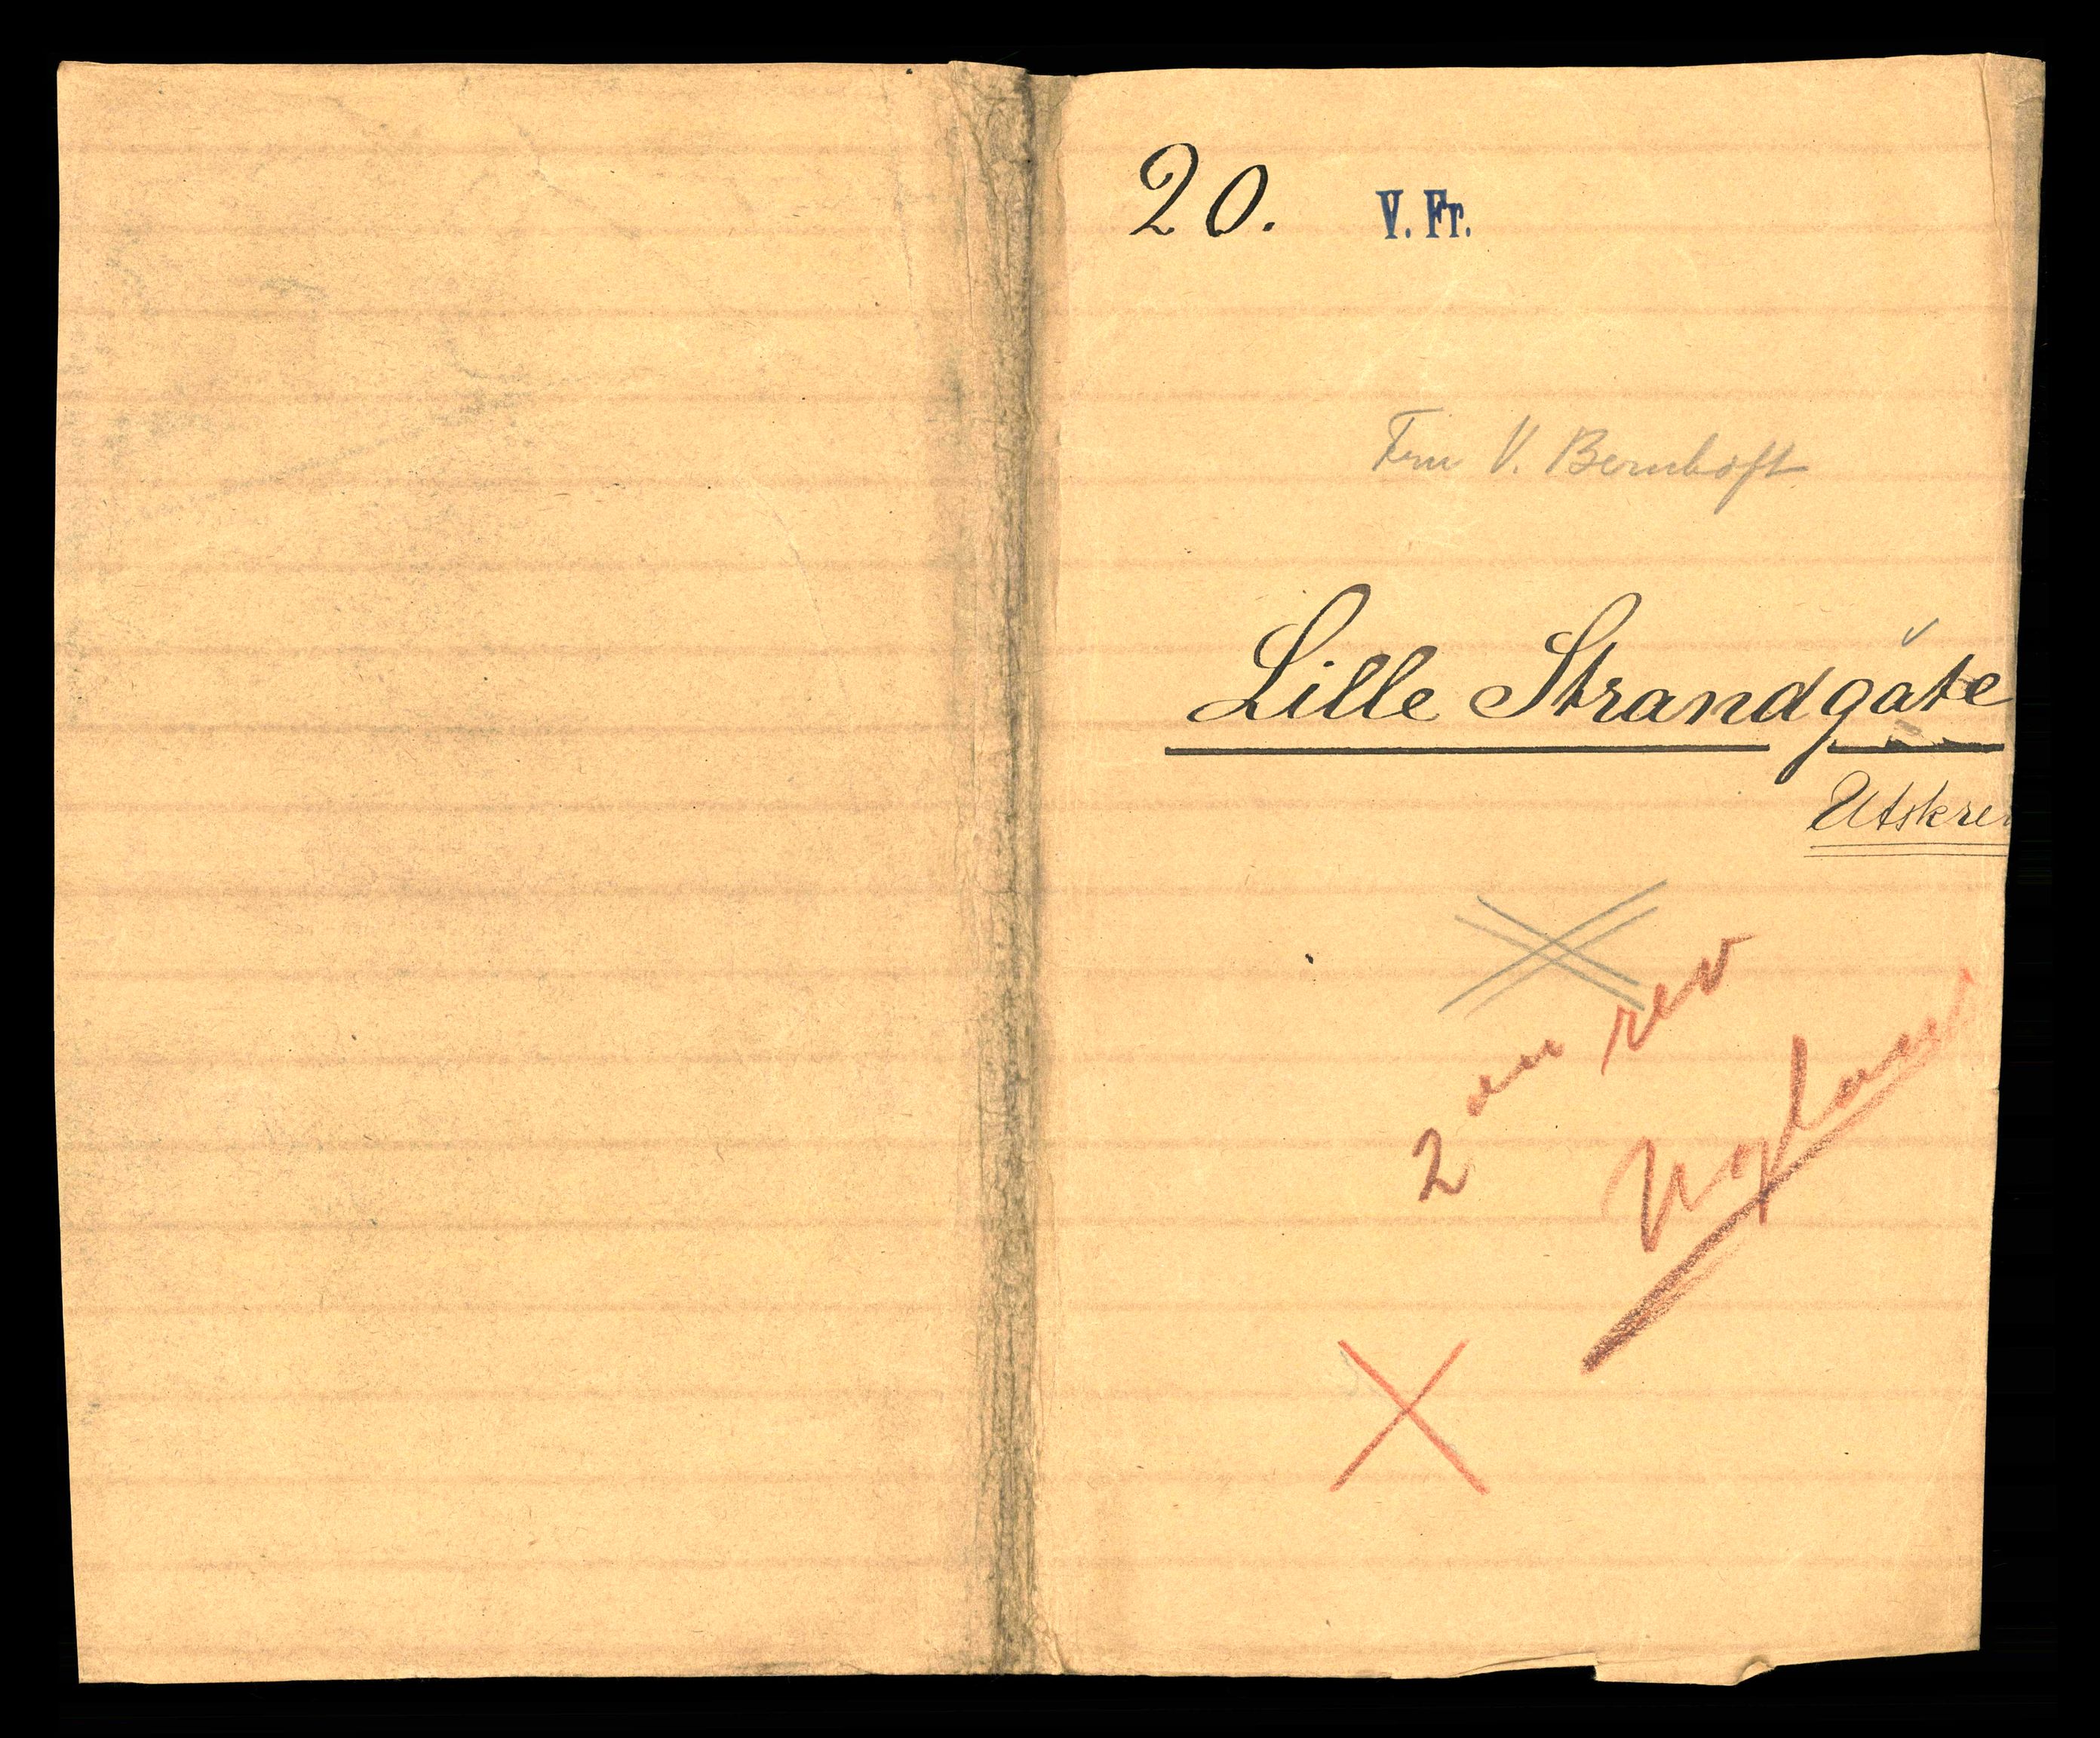 20. V. Fr.
Fru V. Bernhoft
Lille Strandgate
Utskre
2 en rev